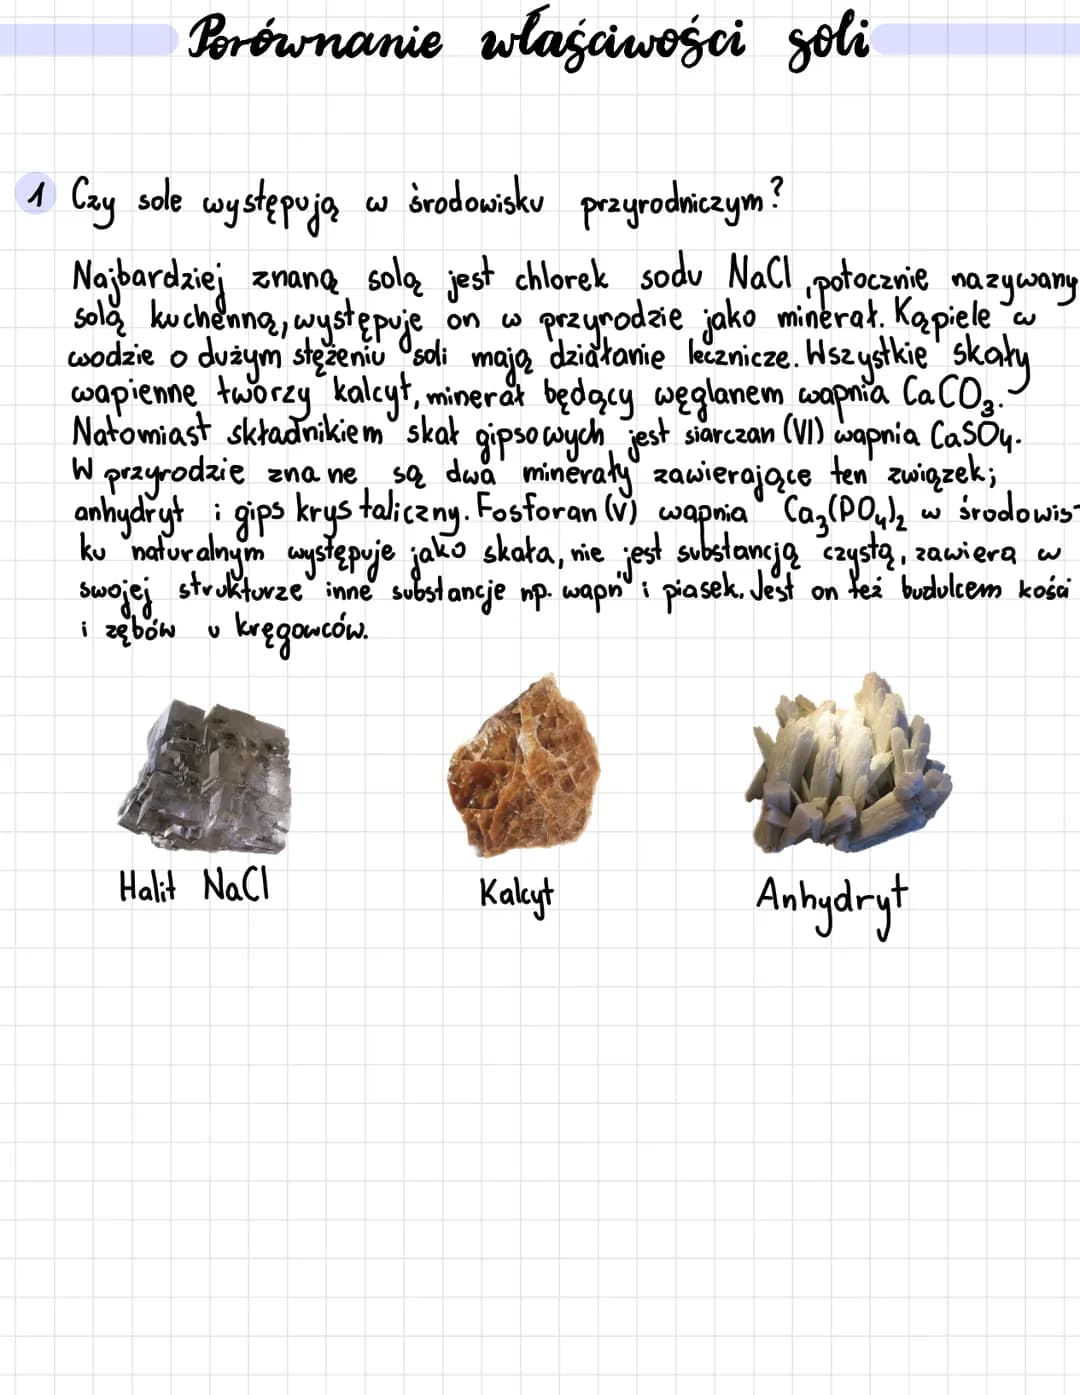 Porównanie właściwości soli
1 Czy sole występują w środowisku przyrodniczym?
Najbardziej znaną solą jest chlorek sodu NaCl, potocznie nazywany
solą kuchenną, występuje on w przyrodzie jako minerał. Kąpiele w
wodzie o dużym stężeniu soli mają działanie lecznicze. Wszystkie skały
wapienne tworzy kalcyt, minerał będący węglanem wapnia CaCO₃.
Natomiast składnikiem skał gipsowych jest siarczan (VI) wapnia CaSO₄.
W przyrodzie znane są dwa minerały zawierające ten związek;
anhydryt i gips krystaliczny. Fosforan (V) wapnia Ca₃(PO₄)₂ w środowis-
ku naturalnym występuje jako skała, nie jest substancją czystą, zawiera w
swojej strukturze inne substancje np. wapń i piasek. Jest on też budulcem kości
i zębów u kręgowców.
Halit NaCl
Kalcyt
Anhydryt